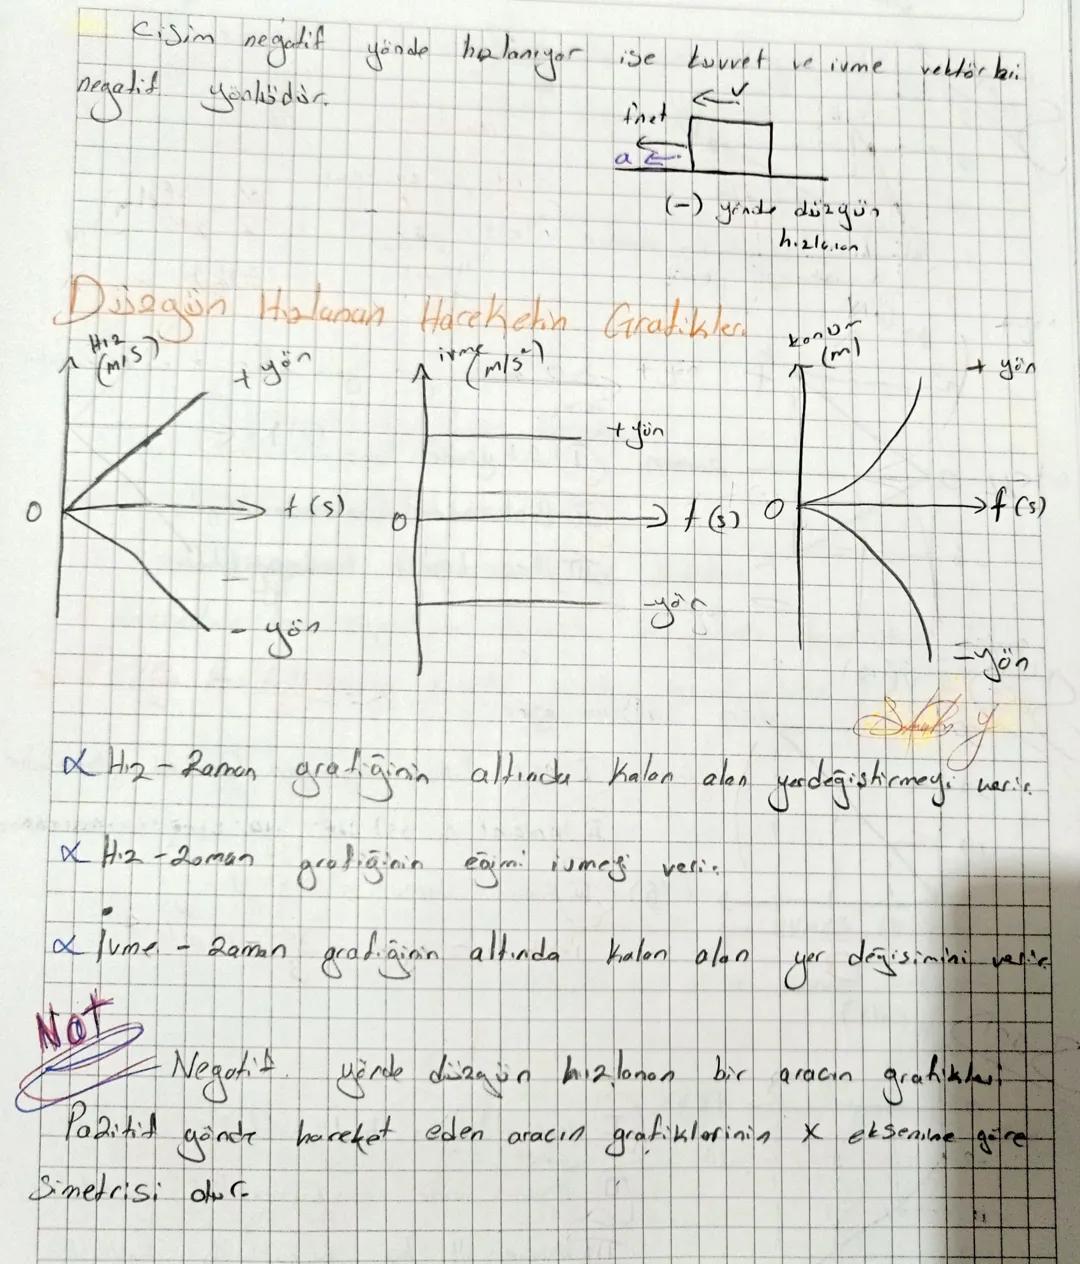 Cisim negatif yönde hızlanıyor ise kuvvet ve ivme vektörleri
negatif yönlüdür.
V
fnet
a
(-) yönde düzgün
hızlanan
Düzgün Hızlanan Hareketin Grafikleri
Hız
(m/s)
+ yön
0
t (s)
- yön
ivme
(m/s²)
+ yön
0
t (s)
-yön
konum
(m)
+ yön
0
t (s)
-yön
α Hız - Zaman grafiğinin altında kalan alan yerdeğiştirmeyi verir.
α Hız - Zaman grafiğinin eğimi ivmeyi verir.
α İvme - Zaman grafiğinin altında kalan alan yer değişimini verir
NOT
Negatif yönde düzgün hızlanan bir aracın grafikleri
Pozitif yönde hareket eden aracın grafiklerinin X eksenine göre
Simetrisi olur.